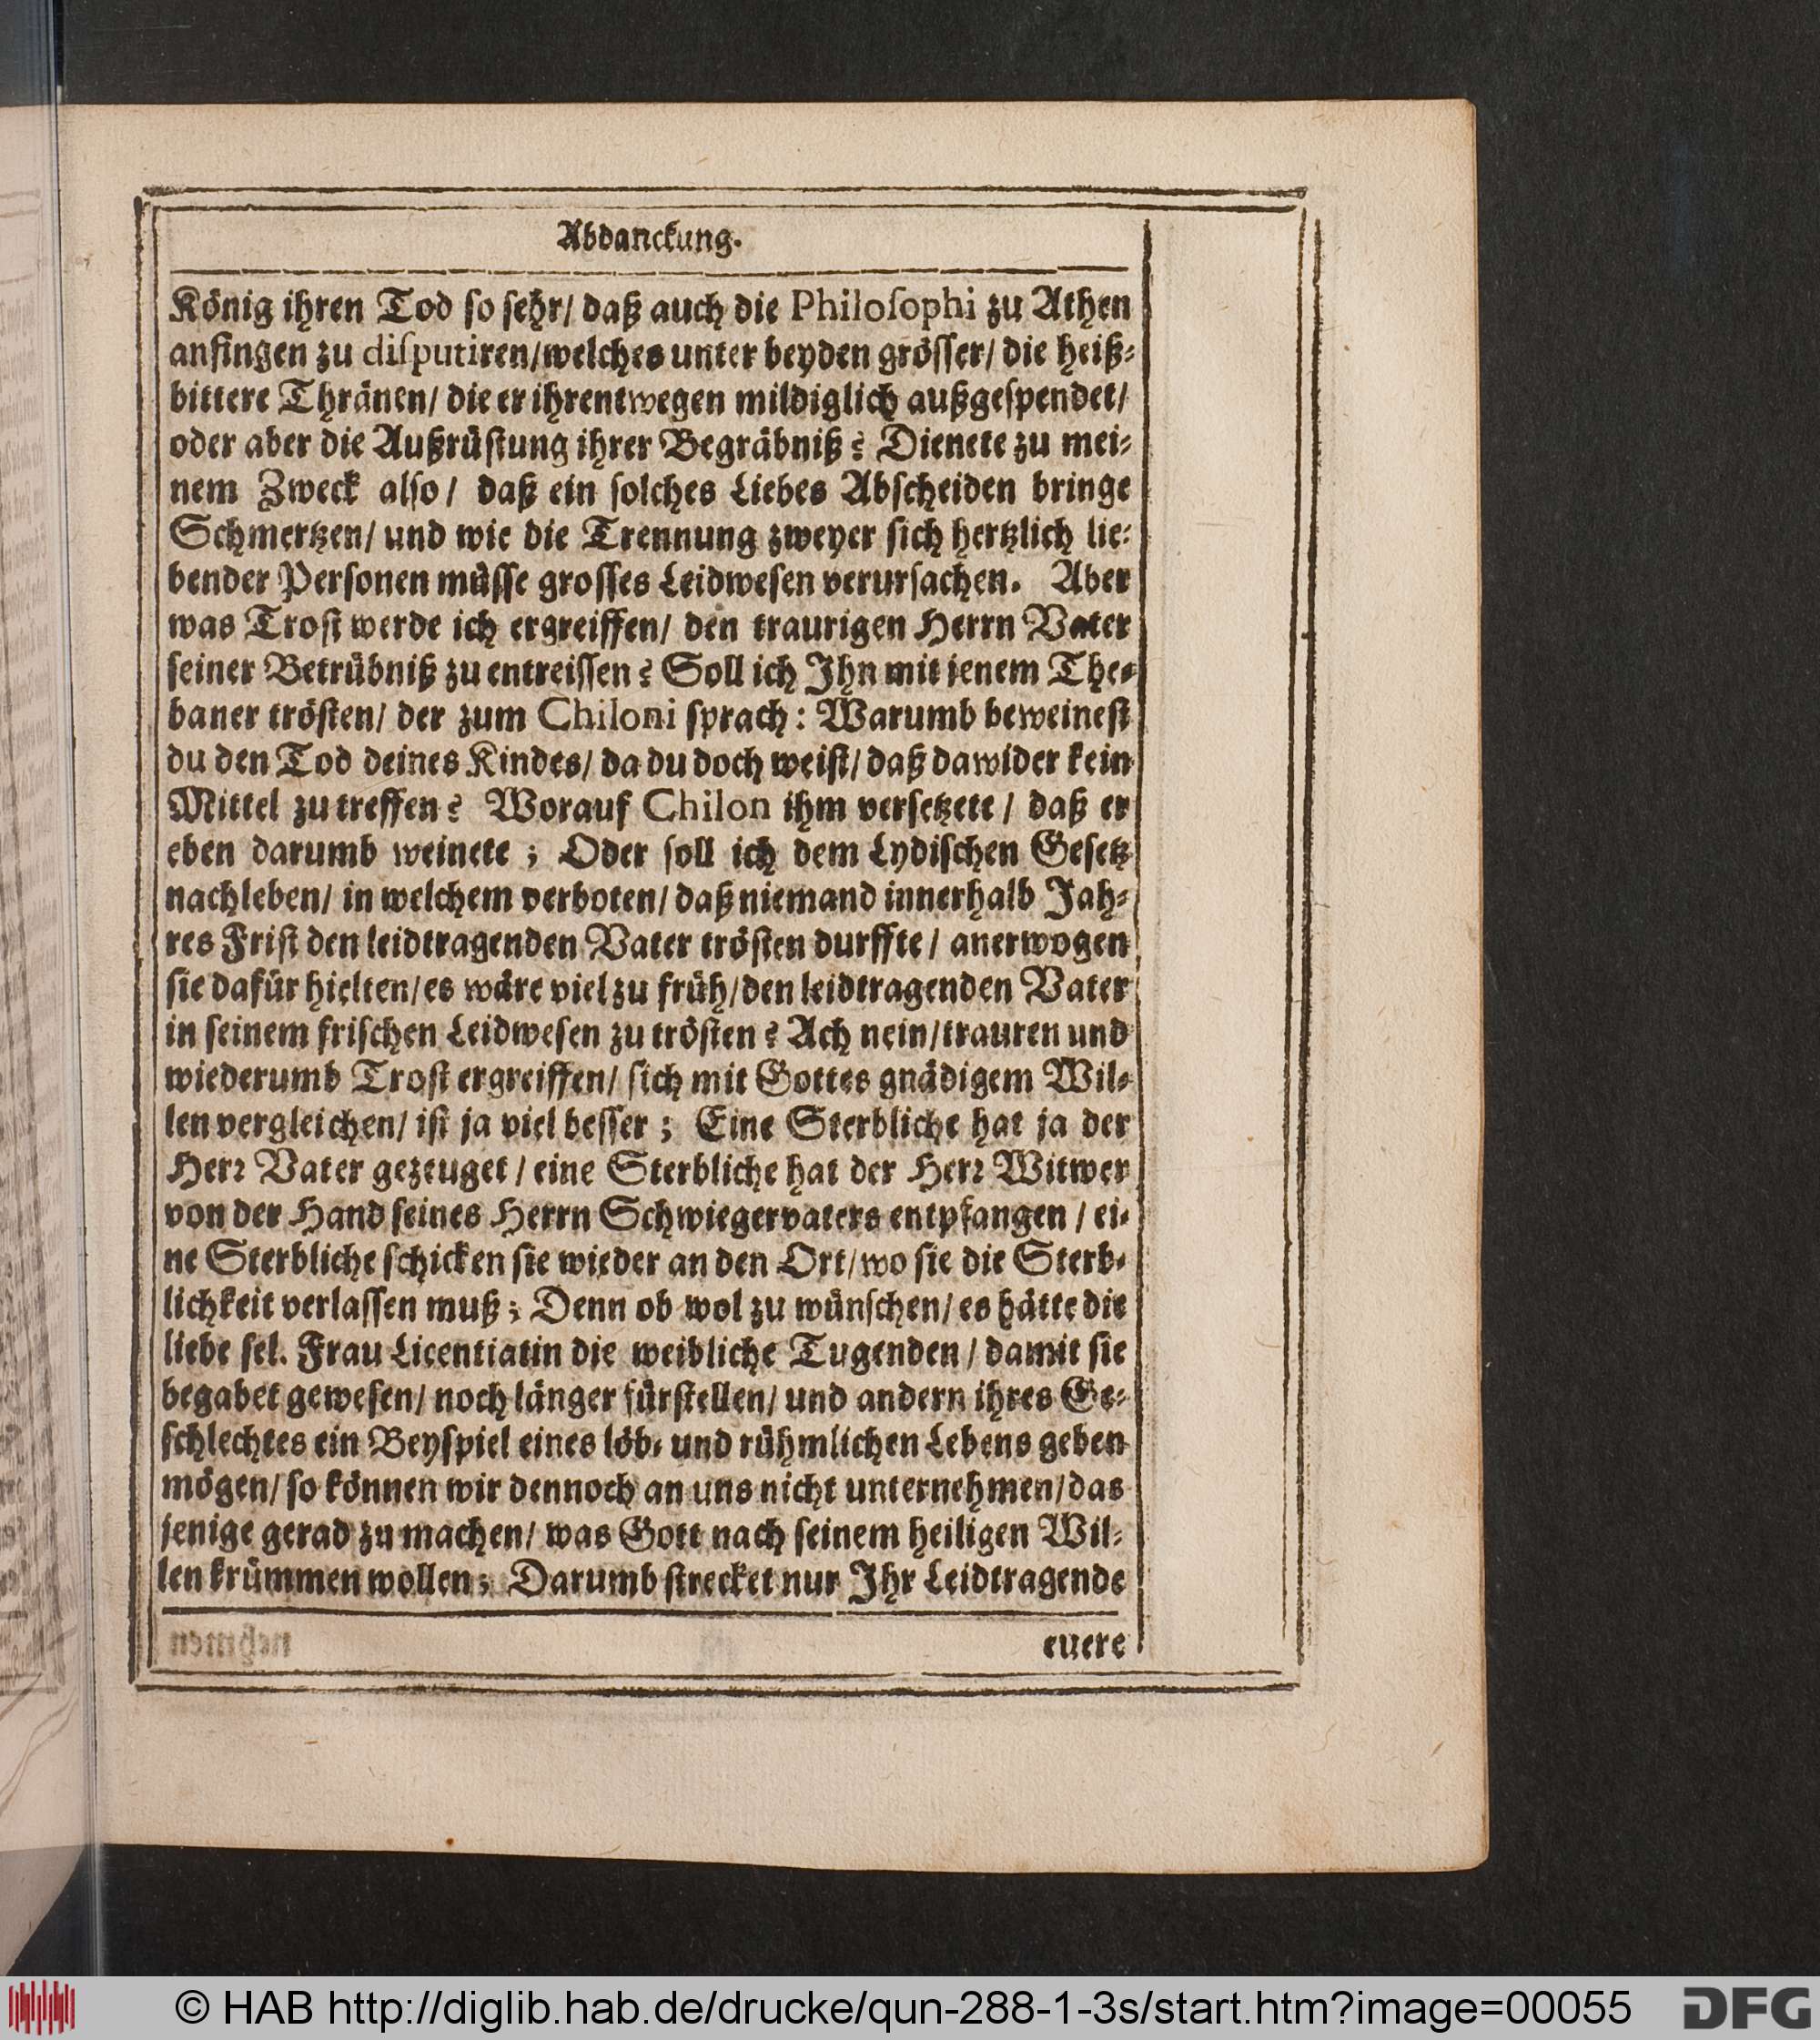 Abdanckung.
König ihren Tod ſo ſehr/ daß auch die Philoſophi zu Athen
anfingen zu diſputiren/welches unter beyden gröſſer/ die heiß-
bittere Thränen/ die er ihrentwegen mildiglich außgeſpendet/
oder aber die Außrüſtung ihrer Begräbniß? Dienete zu mei-
nem Zweck alſo/ daß ein ſolches Liebes Abſcheiden bringe
Schmertzen/ und wie die Trennung zweyer ſich hertzlich lie-
bender Perſonen müſſe groſſes Leidweſen verurſachen. Aber
was Troſt werde ich ergreiffen/ den traurigen Herrn Vater
ſeiner Betrübniß zu entreiſſen? Soll ich Ihn mit jenem The-
baner tröſten/ der zum Chiloni ſprach: Warumb beweineſt
du den Tod deines Kindes/ da du doch weiſt/ daß dawider kein
Mittel zu treffen? Worauf Chilon ihm verſetzete/ daß er
eben darumb weinete; Oder ſoll ich dem Lydiſchen Geſetz
nachleben/ in welchem verboten/ daß niemand innerhalb Jah-
res Friſt den leidtragenden Vater tröſten durffte/ anerwogen
ſie dafür hielten/es wäre viel zu früh/den leidtragenden Vater
in ſeinem friſchen Leidweſen zu tröſten? Ach nein/trauren und
wiederumb Troſt ergreiffen/ ſich mit Gottes gnädigem Wil-
len vergleichen/ iſt ja viel beſſer; Eine Sterbliche hat ja der
Herꝛ Vater gezeuget/ eine Sterbliche hat der Herꝛ Witwer
von der Hand ſeines Herrn Schwiegervaters entpfangen/ ei-
ne Sterbliche ſchicken ſie wieder an den Ort/wo ſie die Sterb-
lichkeit verlaſſen muß; Denn ob wol zu wünſchen/ es hätte die
liebe ſel. Frau Licentiatin die weibliche Tugenden/ damit ſie
begabet geweſen/ noch länger fürſtellen/ und andern ihres Ge-
ſchlechtes ein Beyſpiel eines löb- und rühmlichen Lebens geben
mögen/ ſo können wir dennoch an uns nicht unternehmen/das
jenige gerad zu machen/ was Gott nach ſeinem heiligen Wil-
len krümmen wollen; Darumb ſtrecket nur Ihr Leidtragende
euere
© HAB http://diglib.hab.de/drucke/qun-288-1-3s/start.htm?image=00055
DFG